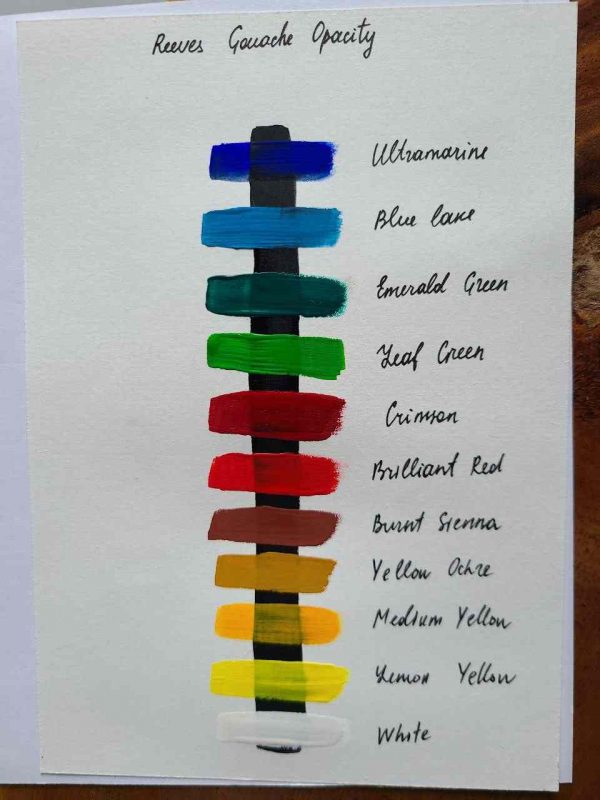 Reeves Gouache Opacity
Ultramarine
Blue lake
Emerald Green
Leaf Green
Crimson
Brilliant Red
Burnt Sienna
Yellow Ochre
Medium Yellow
Lemon Yellow
White